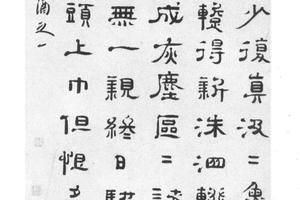 少復真汲〻魯
蹔得新洙泗輟
成灰塵區〻諸
無一親終日馳
頭上巾但恨多
酒之一